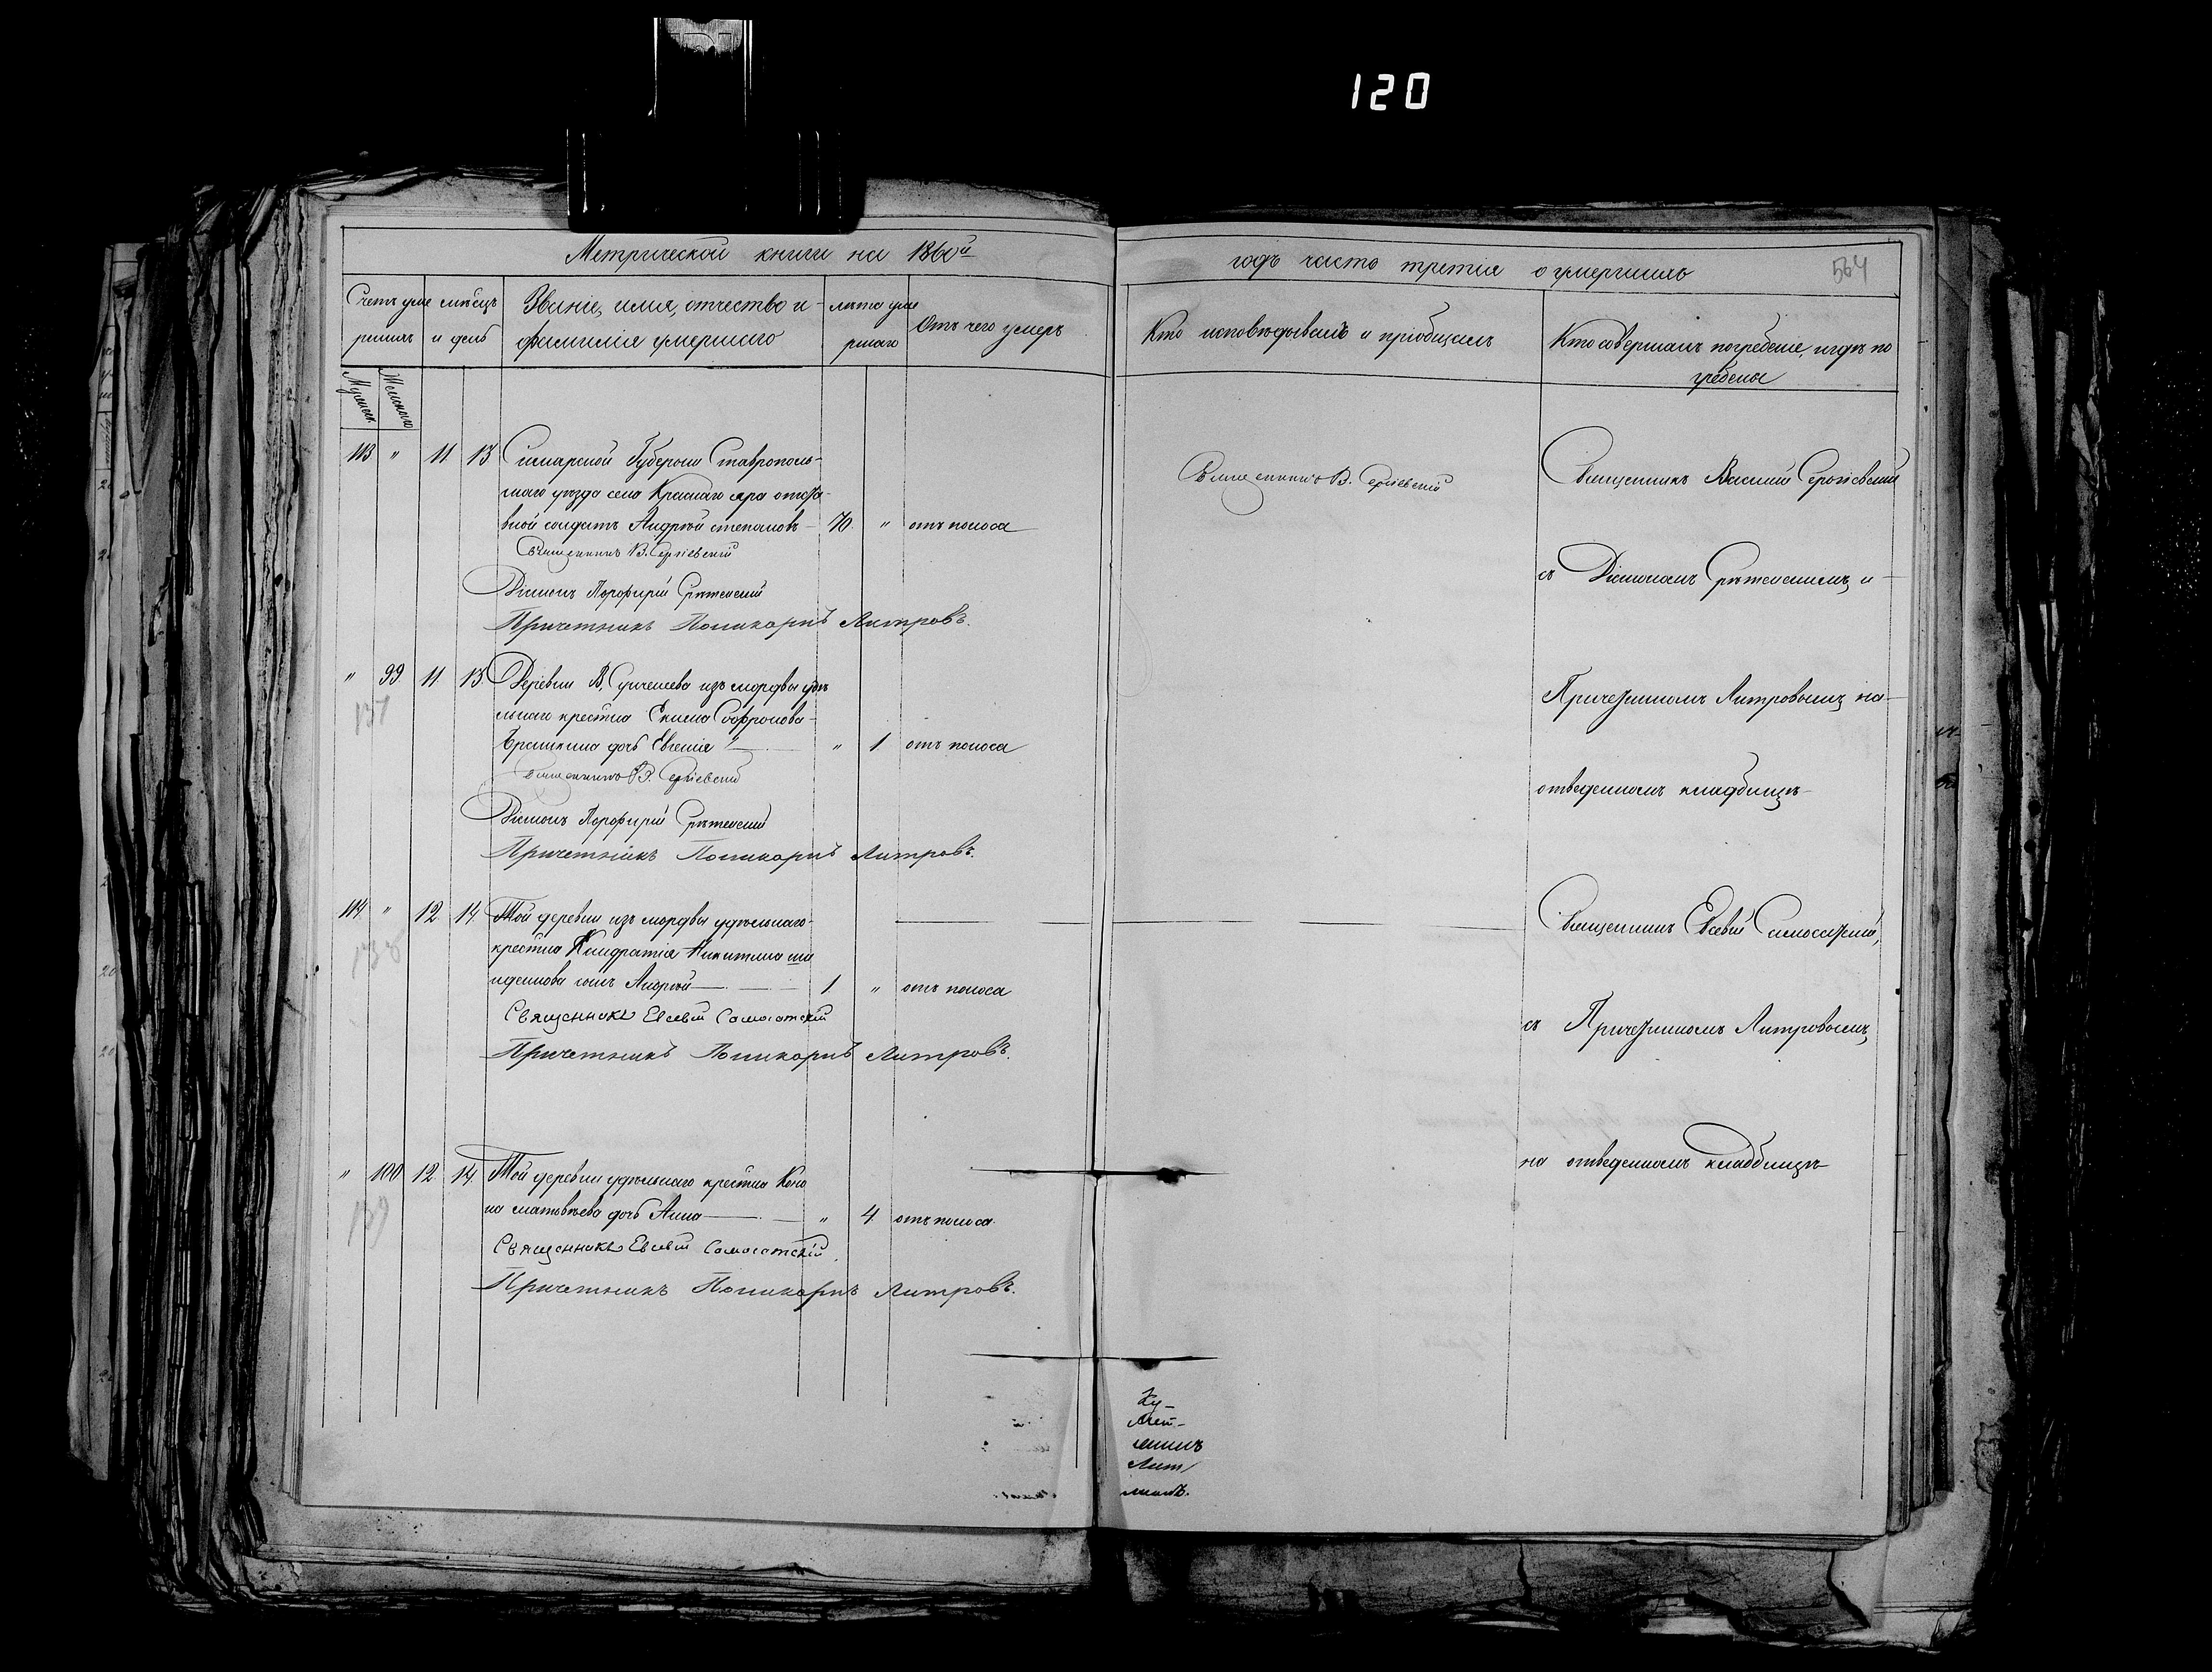 120
Метрической книги на 1860й
годъ часть третія о умершихъ
564
Счетъ уме
ршихъ
мѣсяцъ
и день
Званіе, имя, отчество и
фамилія умершаго
лѣта уме
ршаго
Отъ чего умеръ
Кто исповѣдывалъ и пріобщалъ
Кто совершалъ погребеніе, и гдѣ по
гребены
Мужеска
Женскаго
113 " 11 13 Самарской Губерніи Ставрополь-
скаго уѣзда села Краснаго яра отста-
вной солдатъ Андрей степановъ - 70 " отъ поноса
Священникъ В. Сергіевскій
Діаконъ Порфирій Срѣтенскій
Причетникъ Поликарпъ Литровъ.
Священникъ В. Сергіевскій
Священникъ Василій Сергіевскій
съ Діакономъ Срѣтенскимъ, и
Причетникомъ Литровымъ на-
отведенномъ кладбищѣ
" 99 11 13 Деревни В. Сускеева изъ мордвы удѣ
льнаго крестна Екима Софронова
дочь Евгенія " 1 отъ поноса
137
Священникъ В. Сергіевскій
Діаконъ Порфирій Срѣтенскій
Причетникъ Поликарпъ Литровъ.
114 " 12 14 Той деревни изъ мордвы удѣльнаго
крестна Кондратія Никитина
сынъ Андрей 1 " отъ поноса
138
Священникъ Евсевій Самосатскій
Причетникъ Поликарпъ Литровъ.
Священникъ Евсевій Самосатскій,
съ Причетникомъ Литровымъ,
на отведенномъ кладбищѣ
" 100 12 14 Той деревни удѣльнаго крестна Коно
на матвѣева дочь Анна " 4 отъ поноса
139
Священникъ Евсевій Самосатскій
Причетникъ Поликарпъ Литровъ.